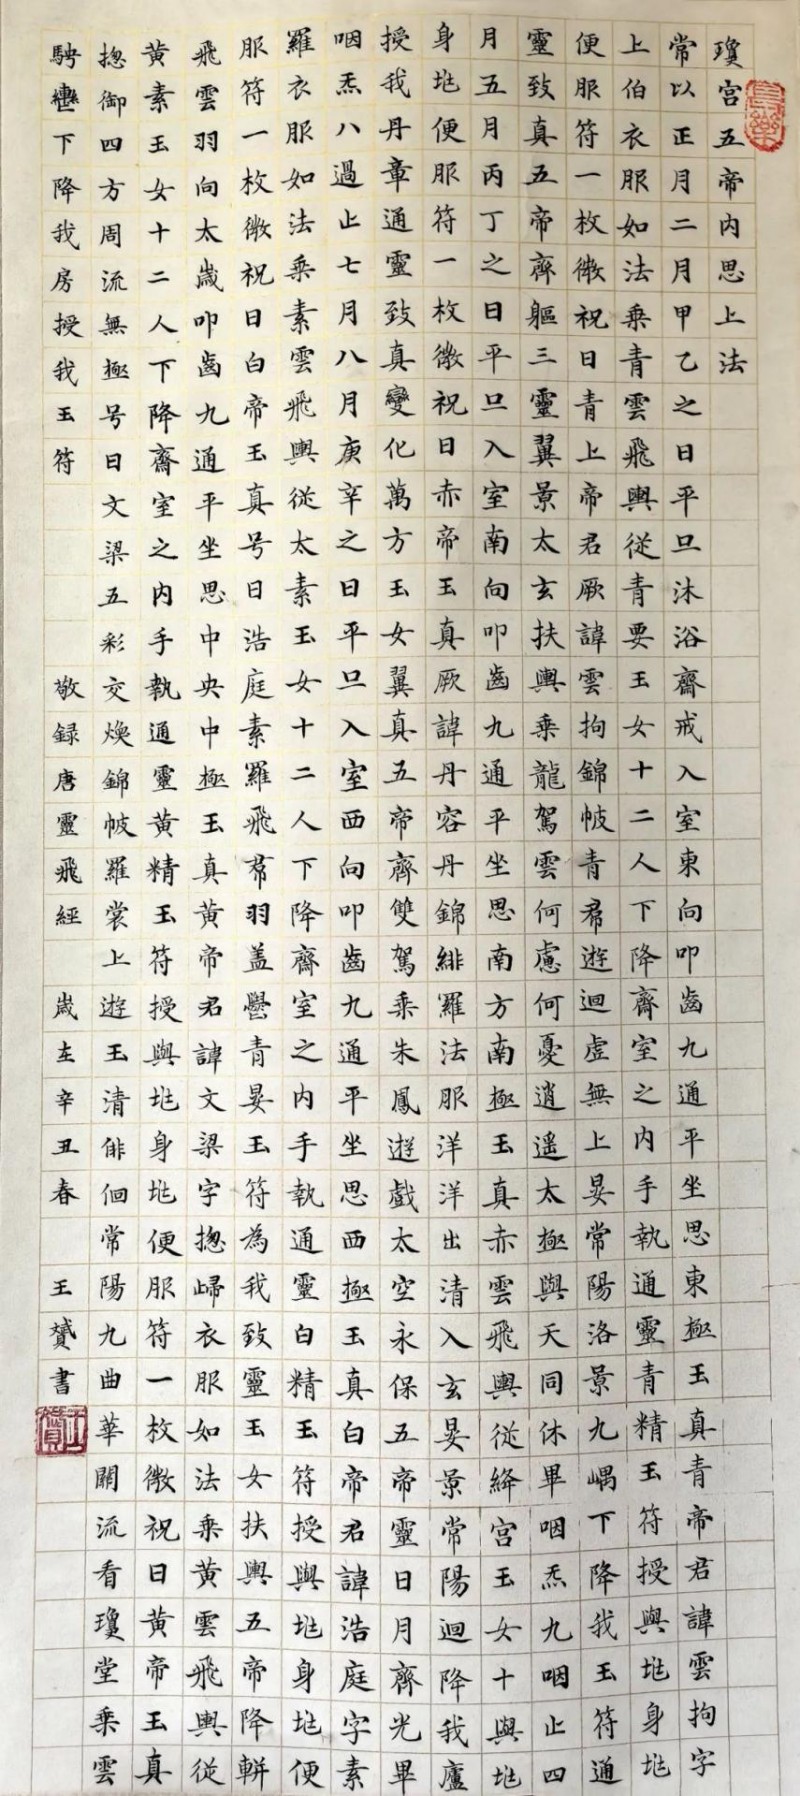 瓊宮五帝内思上法
常以正月二月甲乙之日平旦沐浴齋戒入室東向叩齒九通平坐思東極玉真青帝君諱雲拘字
上伯衣服如法乘青雲飛輿從青要玉女十二人下降齋室之内手執通靈青精玉符授與兆身兆
便服符一枚微祝曰青上帝君厥諱雲拘錦帔青帬遊迴虛無上晏常陽洛景九嵎下降我玉符通
靈致真五帝齊軀三靈翼景太玄扶輿乘龍駕雲何慮何憂逍遙太極與天同休畢咽炁九咽止四
月五月丙丁之日平旦入室南向叩齒九通平坐思南方南極玉真赤雲飛輿從絳宮玉女十與兆
身兆便服符一枚微祝曰赤帝玉真厥諱丹容丹錦緋羅法服洋洋出清入玄晏景常陽迴降我廬
授我丹章通靈致真變化萬方玉女翼真五帝齊雙駕乘朱鳳遊戲太空永保五帝靈日月齊光畢
咽炁八過止七月八月庚辛之日平旦入室西向叩齒九通平坐思西極玉真白帝君諱浩庭字素
羅衣服如法乘素雲飛輿從太素玉女十二人下降齋室之内手執通靈白精玉符授與兆身兆便
服符一枚微祝曰白帝玉真号曰浩庭素羅飛帬羽盖欝青晏玉符為我致靈玉女扶輿五帝降軿
飛雲羽向太歲叩齒九通平坐思中央中極玉真黃帝君諱文梁字摠歸衣服如法乘黃雲飛輿從
黃素玉女十二人下降齋室之内手執通靈黃精玉符授與兆身兆便服符一枚微祝曰黃帝玉真
摠御四方周流無極号曰文梁五彩交煥錦帔羅裳上遊玉清俳佪常陽九曲華關流看瓊堂乘雲
騁轡下降我房授我玉符 敬録唐靈飛經 歲在辛丑春 王贇書
王贇